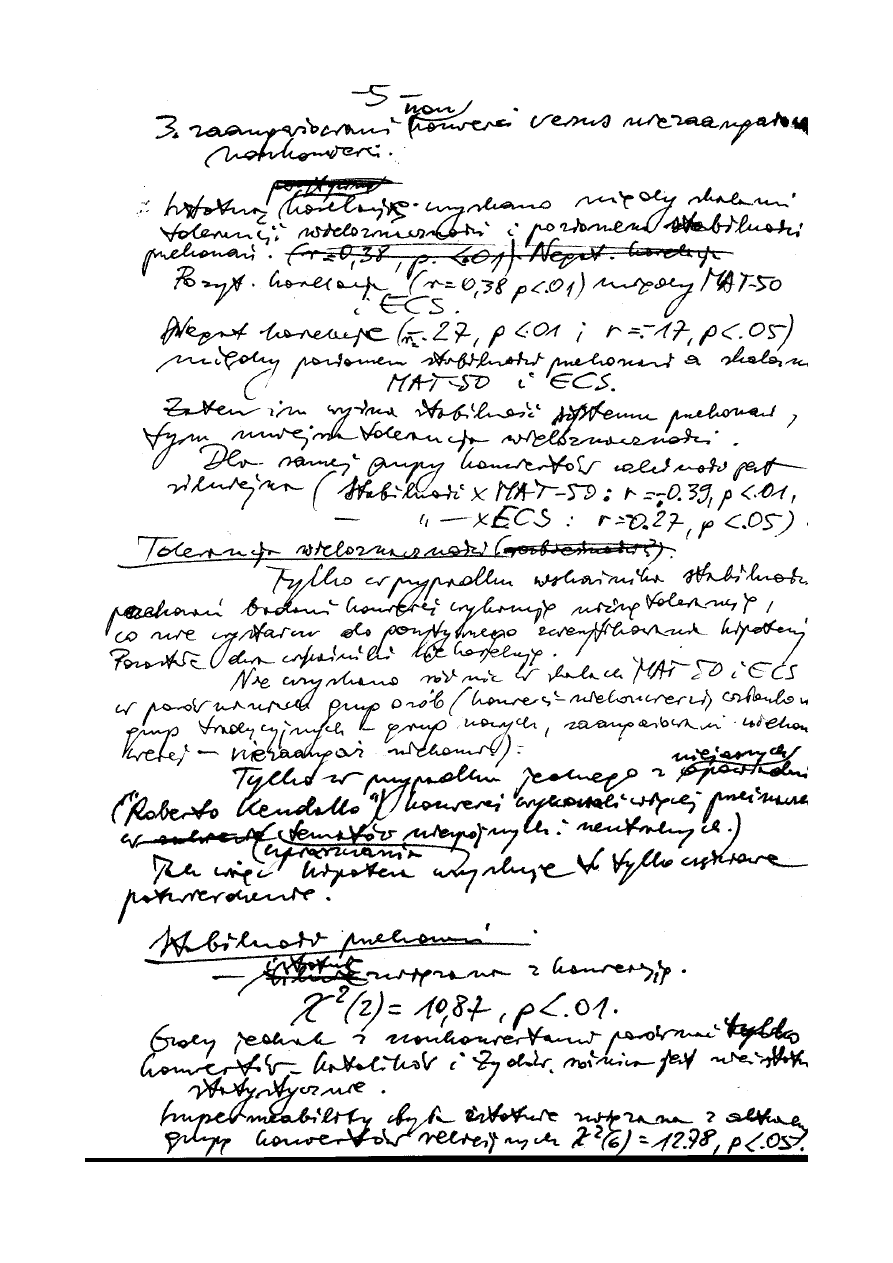 -5-
3. zaangażowani nonkonwerci versus niezaangażow
nonkonwerci.
pozytywną
Istotną korelację uzyskano między skalami
tolerancji wieloznaczności i poziomem stabilności
przekonań. (r=0,38, p. <.01). Negat. korelacje
Pozyt. korelacja (r=0,38 p<.01) między MAT-50
i ECS.
Negat korelacje (r=-.27, p<.01 ; r=-.17, p<.05)
między poziomem stabilności przekonań a skalam
MAT-50 i ECS.
Zatem im wyższa stabilność systemu przekonań,
tym mniejsza tolerancja wieloznaczności.
Dla samej grupy konwertów zależność jest
silniejsza (stabilność x MAT-50: r=-0.39, p<.01,
— " — x ECS: r=0.27, p<.05).
Tolerancja wieloznaczności
Tylko w przypadku wskaźnika stabilności
przekonań badani konwerci wykazują niższą tolerancję,
co nie wystarcza do pozytywnego zweryfikowania hipotezy
Pozostałe dwa wskaźniki nie korelują.
Nie uzyskano różnic w skalach MAT-50 i ECS
w porównaniach grup osób (konwerci-niekonwerci, członków
grup tradycyjnych - grup nowych, zaangażowani niekon
werci — niezaangaż niekonwer):
niejasnych
Tylko w przypadku jednego z opowiadań
("Roberto Kendallo") konwerci wykazali więcej
w tematów niespójnych i neutralnych.)
Tak więc hipoteza uzyskuje tylko częściowe
potwierdzenie.
Stabilność przekonań
istotnie
— związana z konwersją.
χ²(2) = 10,87, p<.01.
Gdy jednak z nonkonwertami porównać tylko
konwertów-katolików i Żydów, różnica jest nieistotn
statystycznie.
Impermeability była istotnie związana z
grupą konwertów religijnych χ²(6) = 12.78, p<.05).